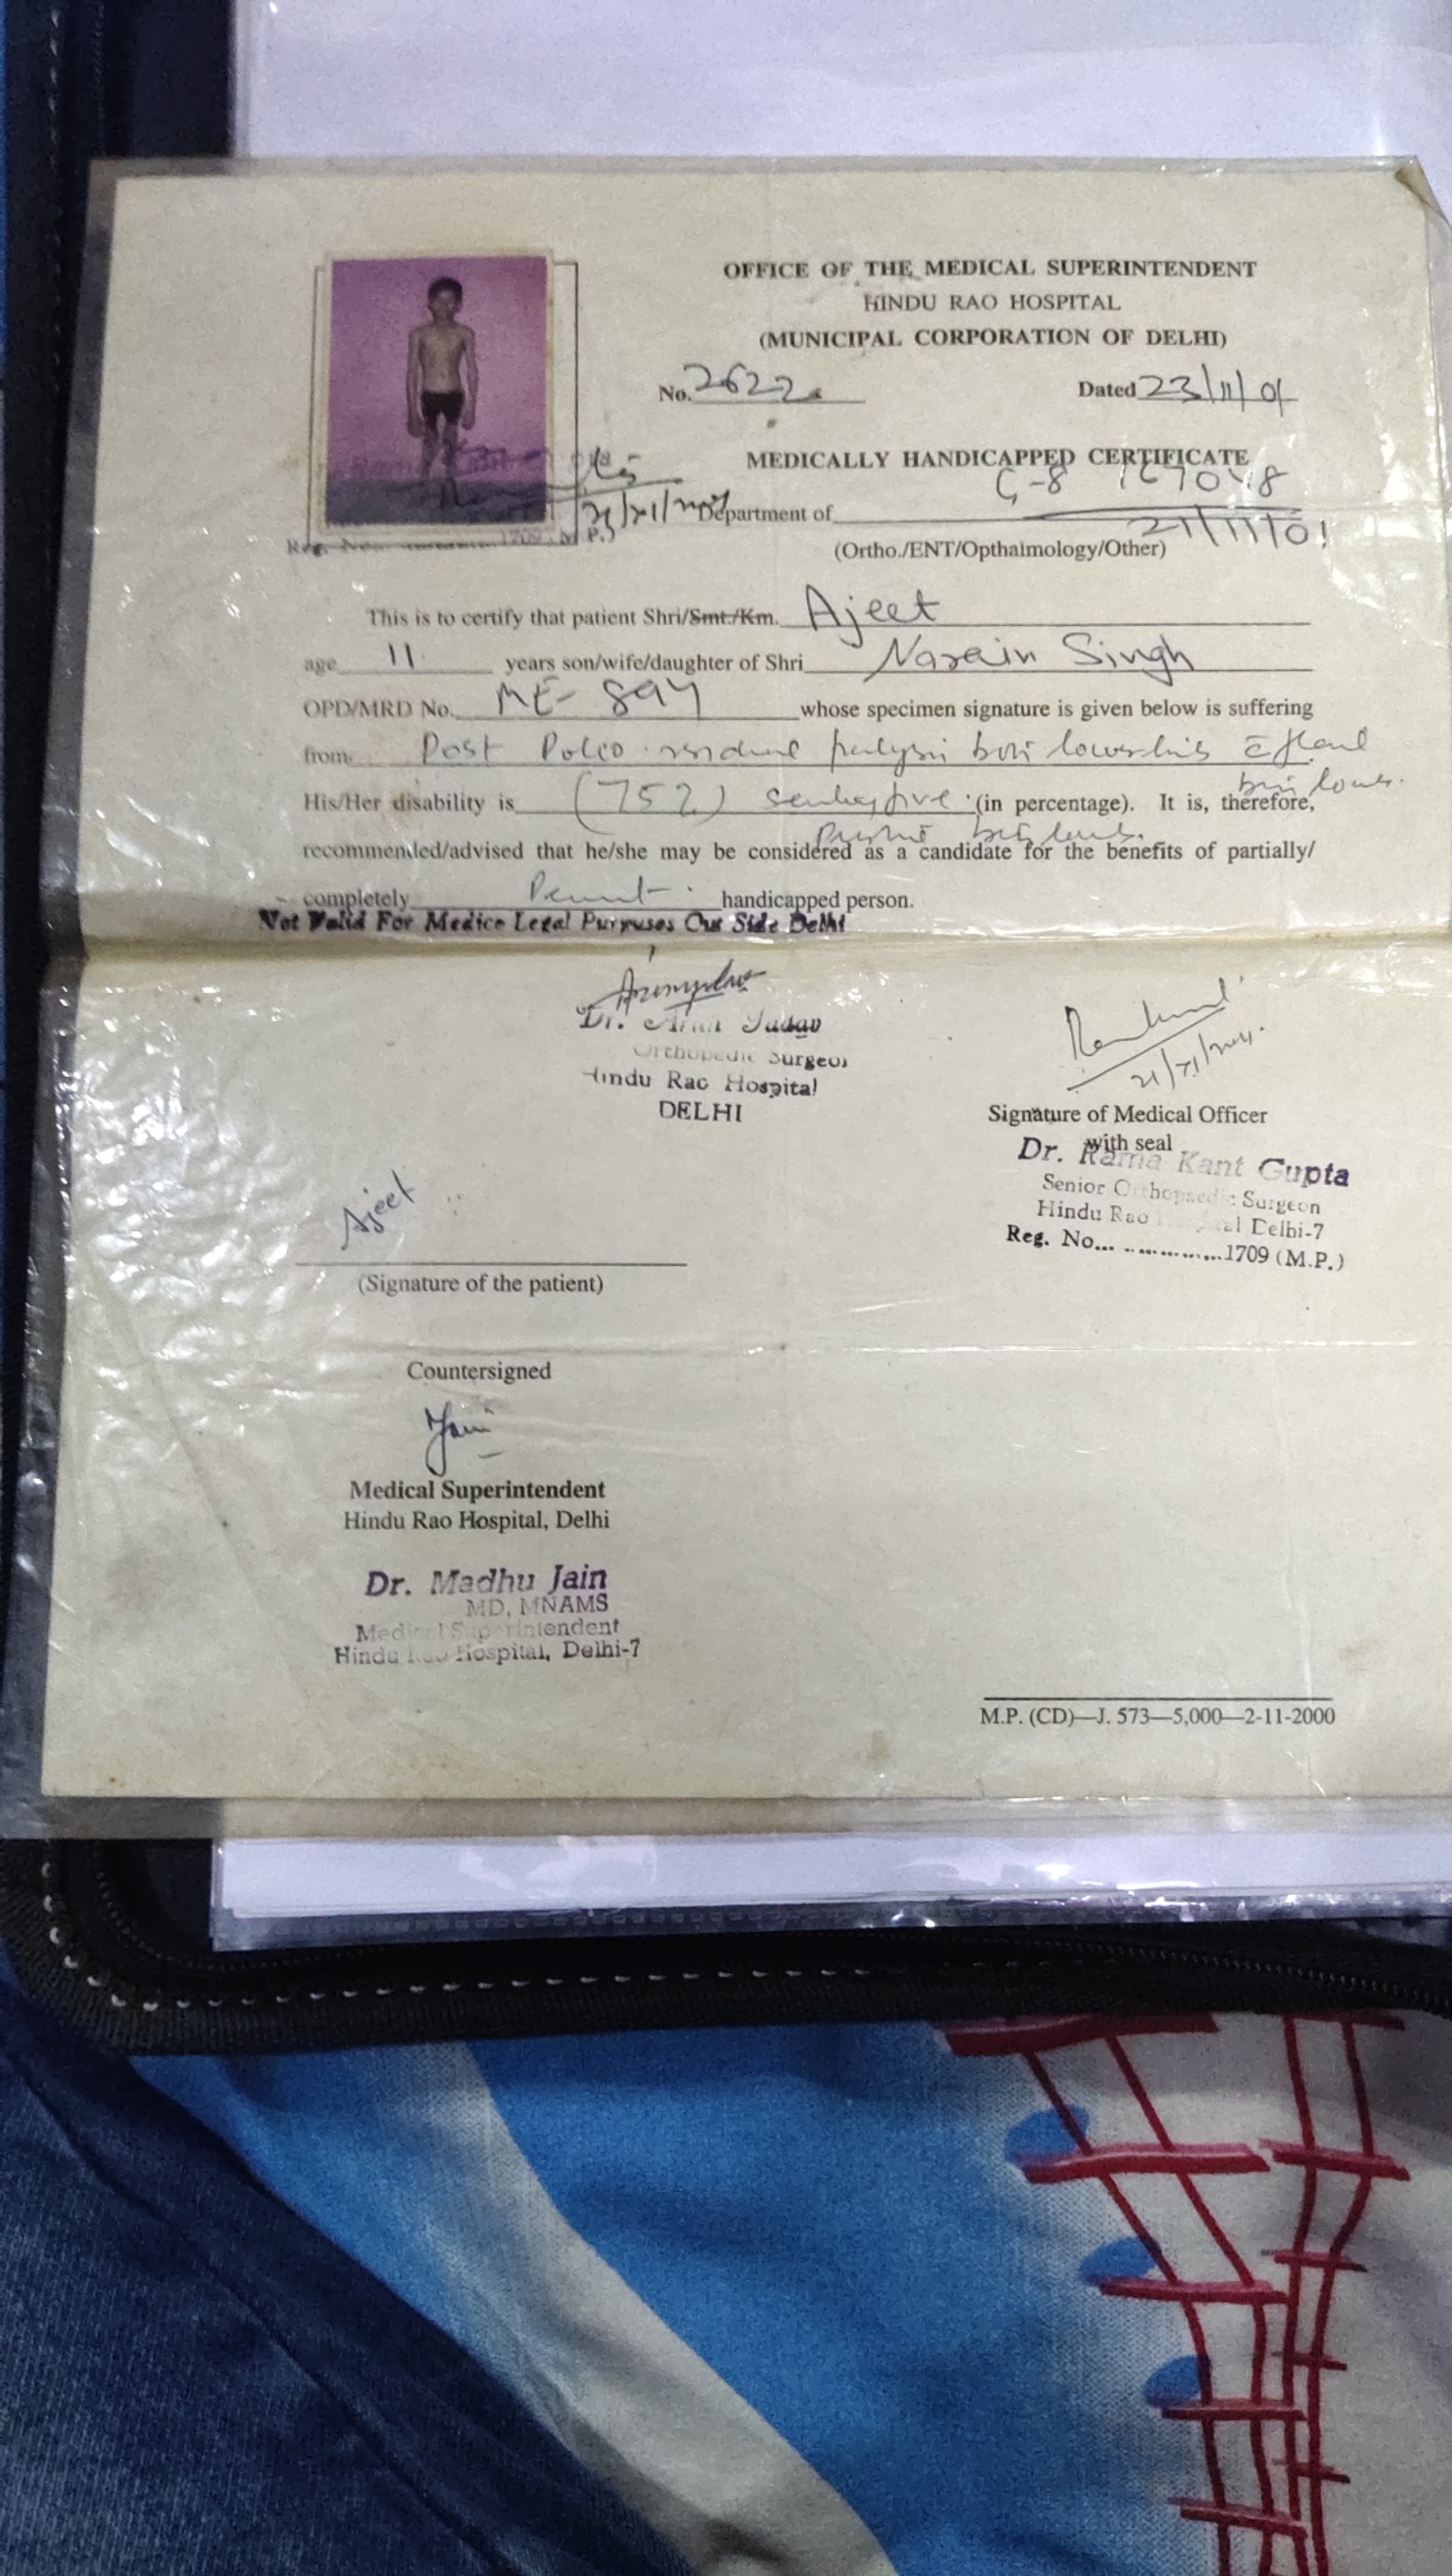 OFFICE OF THE MEDICAL SUPERINTENDENT
HINDU RAO HOSPITAL
(MUNICIPAL CORPORATION OF DELHI)
No. 2622 Dated 23/11/01
MEDICALLY HANDICAPPED CERTIFICATE
C-8 167048
Department of
21/11/01
(Ortho./ENT/Opthalmology/Other)
Reg. No. 1709 (M.P.)
This is to certify that patient Shri/Smt./Km. Ajeet
age 11 years son/wife/daughter of Shri Narain Singh
OPD/MRD No. ME-894 whose specimen signature is given below is suffering
from Post Polio residual paralysis both lower limbs
His/Her disability is (75%) (in percentage). It is, therefore,
recommended/advised that he/she may be considered as a candidate for the benefits of partially/
completely handicapped person.
Not Valid For Medico Legal Purpuses Out Side Delhi
Dr. Arun Yadav
Orthopedic Surgeon
Hindu Rao Hospital
DELHI
21/XI/2001
Signature of Medical Officer
with seal
Dr. Rama Kant Gupta
Senior Orthopaedic Surgeon
Hindu Rao Hospital Delhi-7
Reg. No... ..............1709 (M.P.)
Ajeet
(Signature of the patient)
Countersigned
Jain
Medical Superintendent
Hindu Rao Hospital, Delhi
Dr. Madhu Jain
MD, MNAMS
Medical Superintendent
Hindu Rao Hospital, Delhi-7
M.P. (CD)—J. 573—5,000—2-11-2000